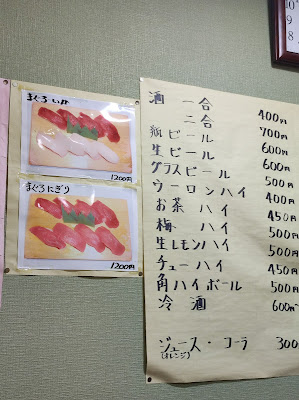 10
9
8
まぐろ いか
1200円
まぐろ にぎり
1200円
酒 一合 400円
二合 700円
瓶ビール 600円
生ビール 600円
グラスビール 500円
ウーロンハイ 400円
お茶ハイ 450円
梅ハイ 500円
生レモンハイ 500円
チューハイ 450円
角ハイボール 500円
冷酒 600円~
ジュース・コーラ 300
(オレンジ)